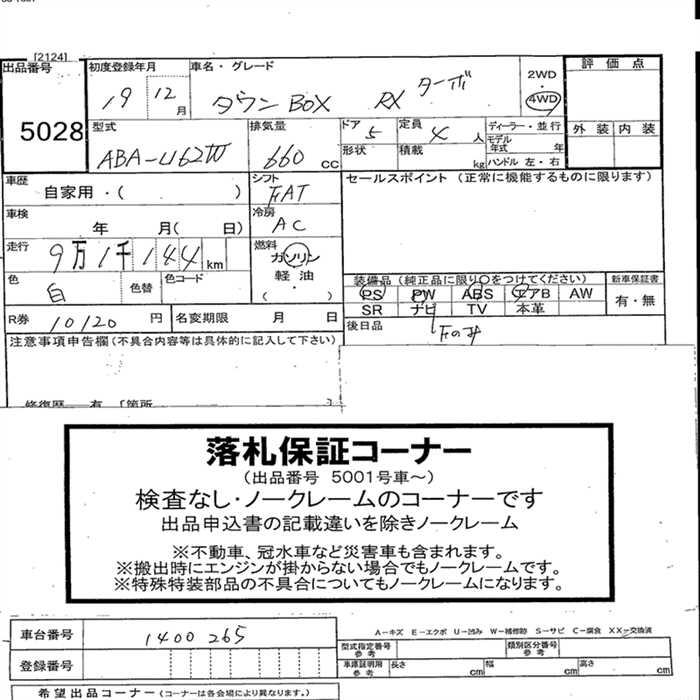 [2124]
出品番号
5028
初度登録年月
19 12月
車名・グレード
タウンBOX RX ターボ
2WD
・
4WD
評価点
外装 内装
型式
ABA-U62W
排気量
660 cc
ドア 5
形状
定員 4 人
積載 kg
ディーラー・並行
モデル年式 年
ハンドル 左・右
車歴
自家用・( )
シフト
FAT
セールスポイント (正常に機能するものに限ります)
車検
年 月( 日)
冷房
AC
走行
9万1千144km
燃料
ガソリン
軽油
( ・ )
色
白
色替
色コード
装備品 (純正品に限り○をつけてください)
PS PW ABS エアB AW
SR ナビ TV 本革
新車保証書
有・無
R券
10120 円
名変期限 月 日
後日品
Fのみ
注意事項申告欄(不具合内容等は具体的に記入して下さい)
修復歴 有 「箇所
落札保証コーナー
(出品番号 5001号車~)
検査なし・ノークレームのコーナーです
出品申込書の記載違いを除きノークレーム
※不動車、冠水車など災害車も含まれます。
※搬出時にエンジンが掛からない場合でもノークレームです。
※特殊特装部品の不具合についてもノークレームになります。
車台番号
1400265
登録番号
A-キズ E-エクボ U-凹み W-補修跡 S-サビ C-腐食 XX-交換済
型式指定番号
参考
類別区分番号
参考
車庫証明用
参考
長さ cm
幅 cm
高さ cm
希望出品コーナー (コーナーは各会場により異なります。)